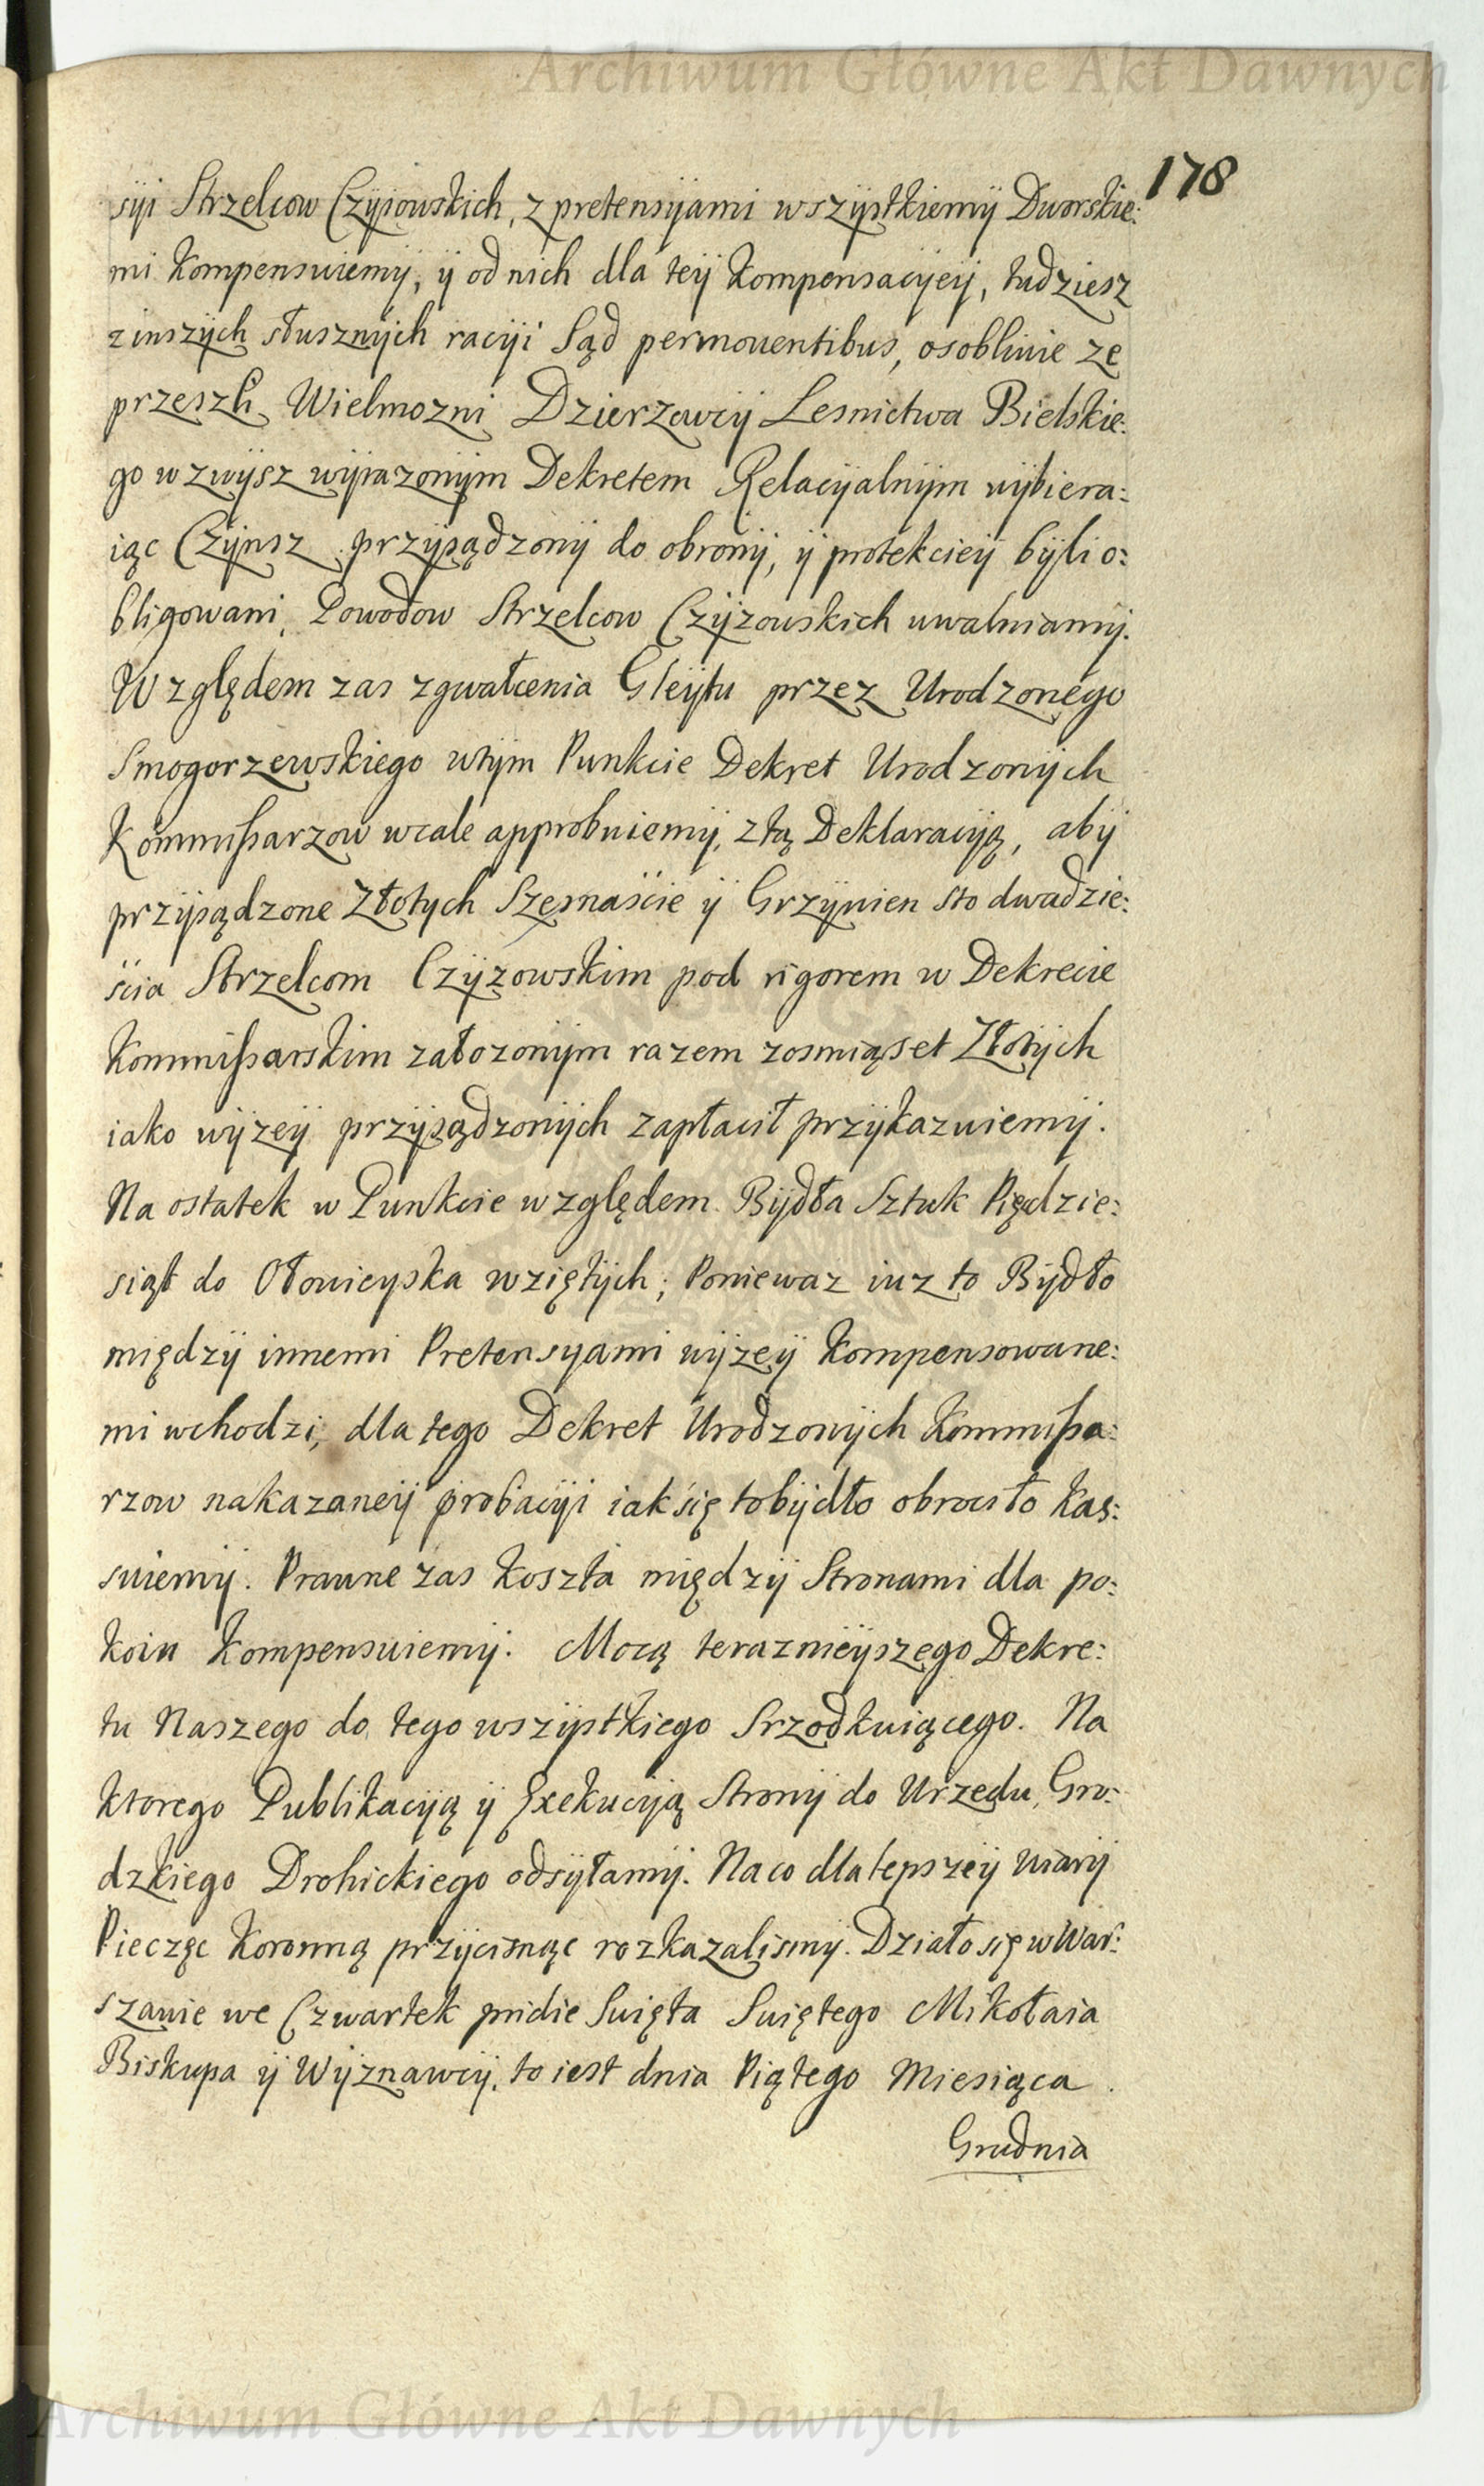 Archiwum Główne Akt Dawnych
178
syi Strzelcow Czyiowskich, z pretensyiami wszystkiemy Dworskie:
mi kompensuiemy, y od nich dla tey kompensacyey, tudziesz
z inszych słusznych racyi Sąd permouentibus, osobliwie ze
przeszli Wielmozni Dzierzawcy Lesnictwa Bielskie:
go w zwysz wyrazonym Dekretem Relacyalnym wybiera:
iąc Czynsz przysądzony do obrony, y protekciey byli o:
bligowani, Powodow Strzelcow Czyzowskich uwalniamy.
Względem zas zgwałcenia Gleytu przez Urodzonego
Smogorzewskiego wtym Punkcie Dekret Urodzonych
Kommissarzow wcale approbuiemy, z tą Deklaracyją, aby
przysądzone Złotych Szesnaście y Grzywien sto dwadzie:
ścia Strzelcom Czyzowskim pod rigorem w Dekrecie
Kommissarskim załozonym razem zosmiąset Złotych
iako wyzey przysądzonych zapłacił przykazuiemy.
Na ostatek w Punkcie względem Bydła Sztuk Pięcdzie:
siąt do Ołowicyska wziętych; Poniewaz iuz to Bydło
między innemi Pretensyami wyzey kompensowane:
mi wchodzi, dla tego Dekret Urodzonych Kommissa:
rzow nakazaney probacyi iak się to bydło obrociło kas:
suiemy. Prawne zas koszta między Stronami dla po:
koiu kompensuiemy. Mocą teraznieyszego Dekre:
tu Naszego do tego wszystkiego Srzodkuiącego. Na
ktorego Publikacyją y Exekucyją Strony do Urzedu Gro:
dzkiego Drohickiego odsyłamy. Na co dla lepszey wiary
Pieczęc Koronną przycisnąc rozkazalismy. Działo się w War:
szawie we Czwartek pridie Swięta Swiętego Mikołaia
Biskupa y Wyznawcy, to iest dnia Piątego Miesiąca
Grudnia
Archiwum Główne Akt Dawnych